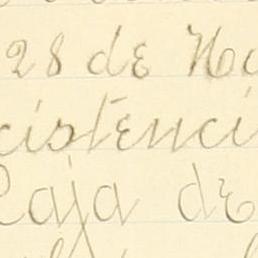 28 de No
cistenci
Caja de